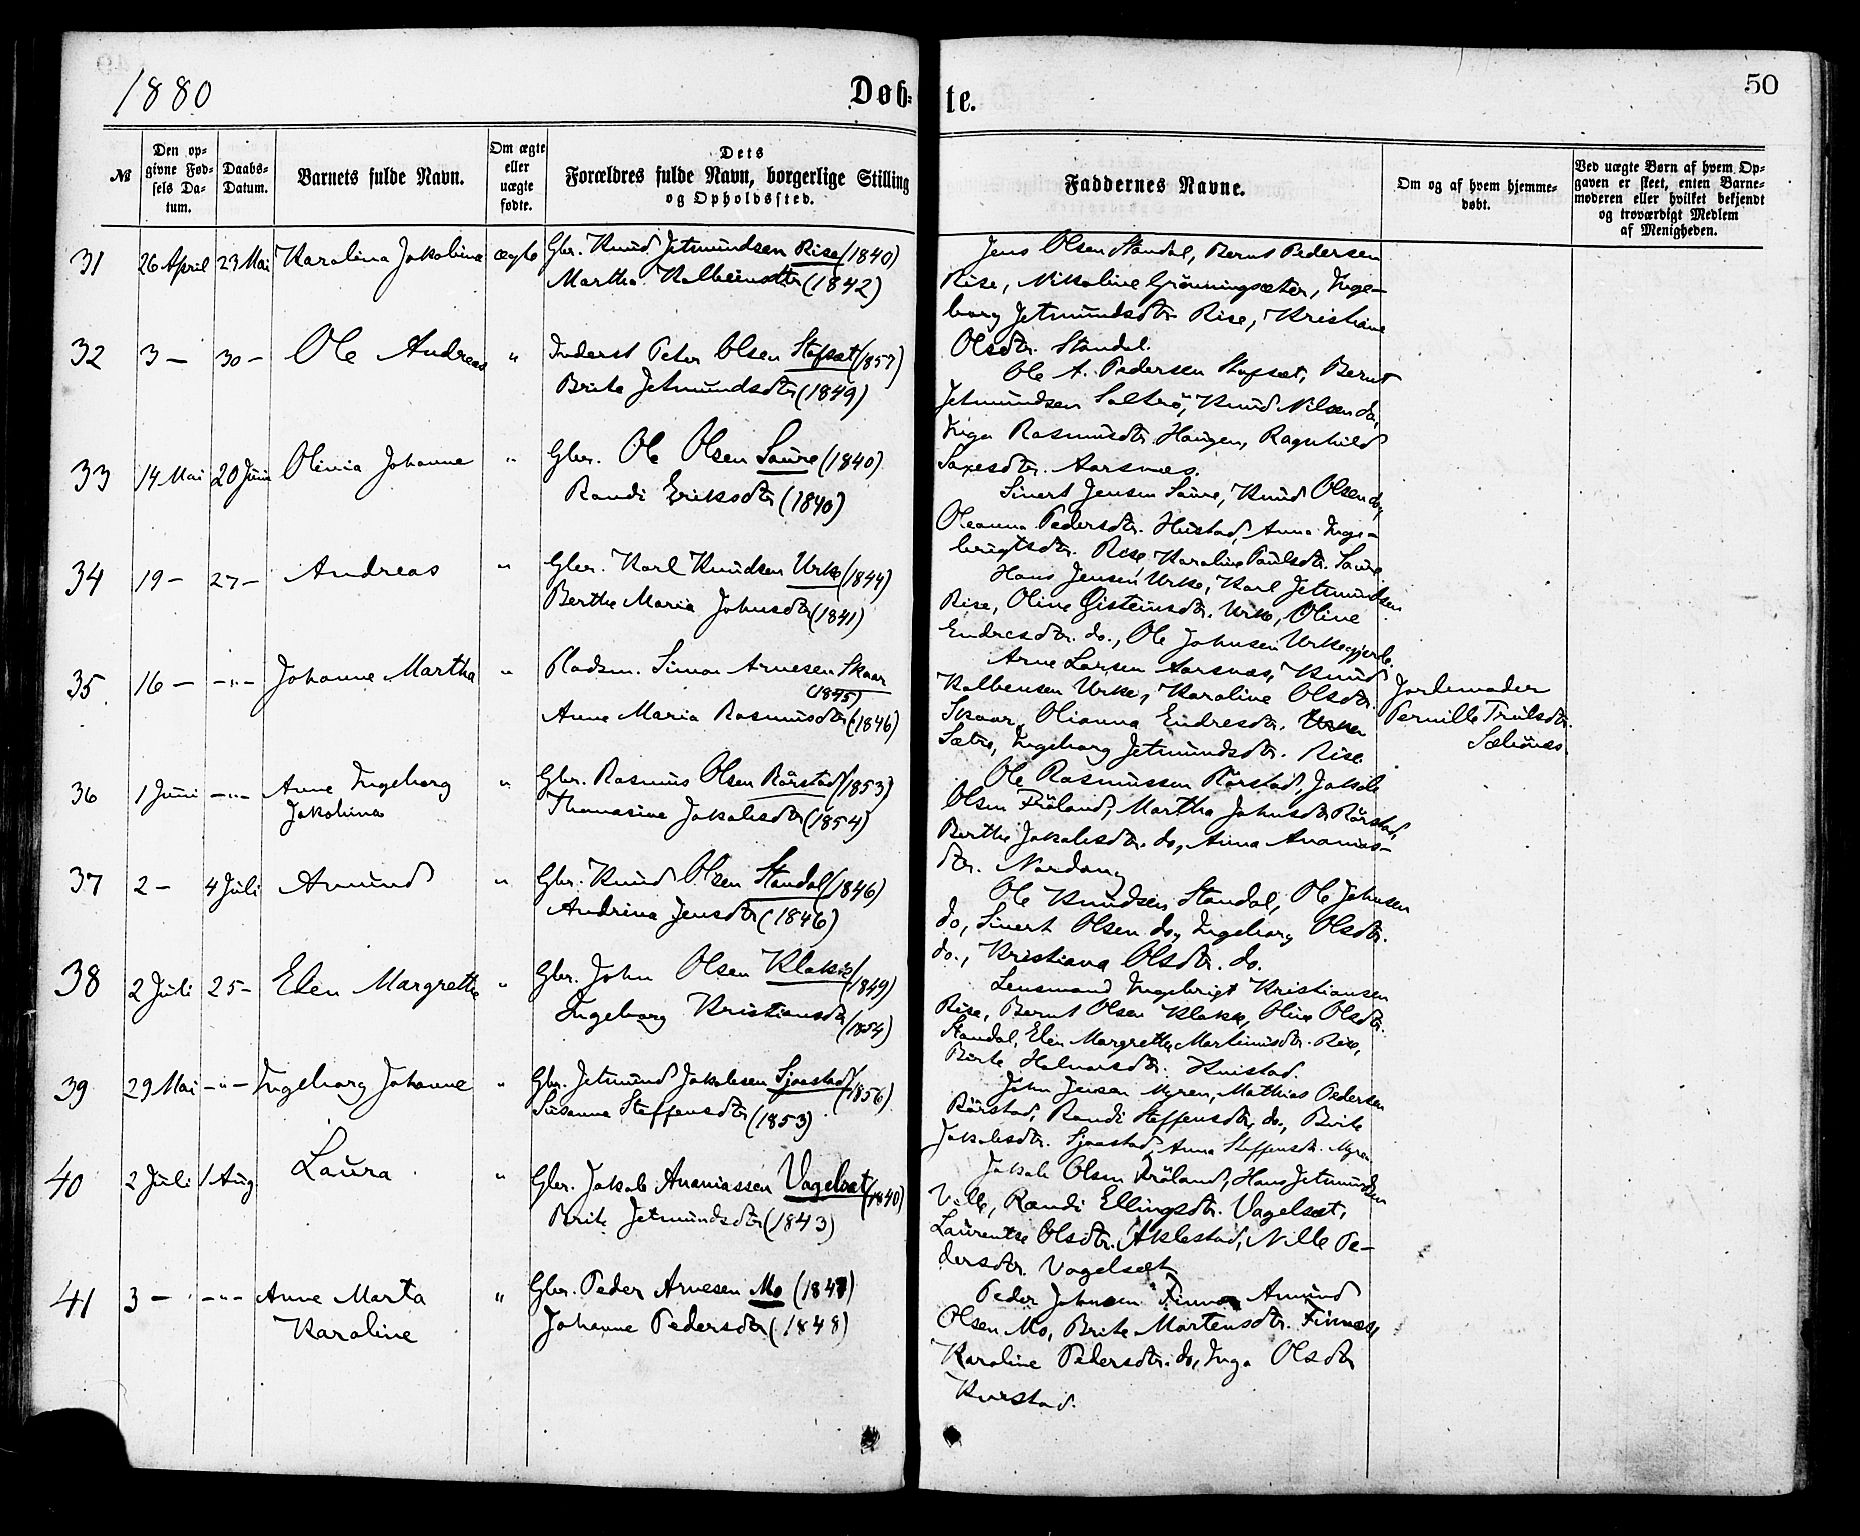 1880
Døb-
te.
50
№
Den op-
givne Fød-
sels Da-
tum.
Daabs-
Datum.
Barnets fulde Navn.
Om ægte
eller
uægte
fødte.
Dets
Forældres fulde Navn, borgerlige Stilling
og Opholdssted.
Faddernes Navne.
Om og af hvem hjemme-
døbt.
Ved uægte Børn af hvem Op-
gaven er skeet, enten Barne-
moderen eller hvilket bekjendt
og troværdigt Medlem
af Menigheden.
31 26 April 23 Mai Karolina Jakobina ægte Gbr. Knud Jetmundsen Rise (1840)
Martha Kolbeinsdtr (1842)
Jens Olsen Standal, Bernt Pedersen
Rise, Nikoline Grønningsæter, Inge-
borg Jetmundsdtr Rise, Kristiane
Olsdtr. Standal.
32 3 — 30 — Ole Andreas " Inderst Peter Olsen Stofset (1857)
Brite Jetmundsdtr (1849)
Ole A. Pedersen Stofset, Bernt
Jetmundsen Solbrø, Knud Nilsen do,
Inga Rasmusdtr. Haugen, Ragnhild
Saxesdtr. Aarsnes.
33 14 Mai 20 Juni Olinia Johanne " Gbr. Ole Olsen Saure (1840)
Randi Eriksdtr (1840)
Sivert Jensen Saure, Knud Olsen do,
Oleanna Pedersdtr. Hustad, Anna Inge-
brigtsdtr. Rise, Karoline Paulsdtr. Saure
34 19 — 27 — Andreas " Gbr. Karl Knudsen Urke (1844)
Berthe Maria Johnsdtr (1841)
Hans Jensen Urke, Karl Jetmundsen
Rise, Oline Øisteinsdtr. Urke, Oline
Endresdtr. do., Ole Johnsen Urkegjerde.
35 16 — — " — Johanne Martha " Pladsm. Simon Arnesen Skaar
(1845)
Anne Maria Rasmusdtr (1846)
Arne Larsen Aarsnes, Knud
Kolbensen Urke, Karoline Olsdtr.
Skaar, Olianna Endresdtr. Urke
Sætre, Ingeborg Jetmundsdtr. Rise
Jordemoder
Pernille Trulsdtr.
Sæbønes.
36 1 Juni — " — Anne Ingeborg
Jakobina
" Gbr. Rasmus Olsen Rørstad (1853)
Thomasine Jakobsdtr (1854)
Ole Rasmussen Rørstad, Jakob
Olsen Frøland, Martha Johnsdtr Rørstad,
Berthe Jakobsdtr. do, Anna Ananias-
dtr. Nordang
37 2 — 4 Juli Amund " Gbr. Knud Olsen Standal (1846)
Andrina Jensdtr (1846)
Ole Knudsen Standal, Ole Johnsen
do, Sivert Olsen do, Ingeborg Olsdtr.
do., Kristiana Olsdtr. do.
38 2 Juli 25 — Elen Margrethe " Gbr. John Olsen Klokk (1849)
Ingeborg Kristiansdtr
(1854)
Lensmand Ingebrigt Kristiansen
Rise, Bernt Olsen Klokk, Oline Olsdtr.
Standal, Elen Margrethe Martinusdtr. Rise,
Birte Halvorsdtr. Hustad.
39 29 Mai — " — Ingeborg Johanne " Gbr. Jetmund Jakobsen Sjaastad (1856)
Susanna Steffensdtr (1853)
John Jensen Myren, Mathias Pedersen
Rørstad, Randi Steffensdtr. do., Brite
Jakobsdtr. Sjaastad, Anna Steffensdtr. Myren
40 2 Juli 1 Aug Laura " Gbr. Jakob Ananiassen Vagelsæt (1840)
Brite Jetmundsdtr (1843)
Jakob Olsen Frøland, Hans Jetmundsen
Velle, Randi Ellingsdtr. Vagelsæt,
Laurentse Olsdtr. Aklestad, Nille Pe-
dersdtr. Vagelsæt
41 3 — — " — Anne Marta
Karoline
" Gbr. Peder Arnesen Mo (1847)
Johanne Pedersdtr (1848)
Peder Johnsen Finnes Amund
Olsen Mo, Brite Martensdtr. Finnes,
Karoline Pedersdtr. do, Inga Olsdtr